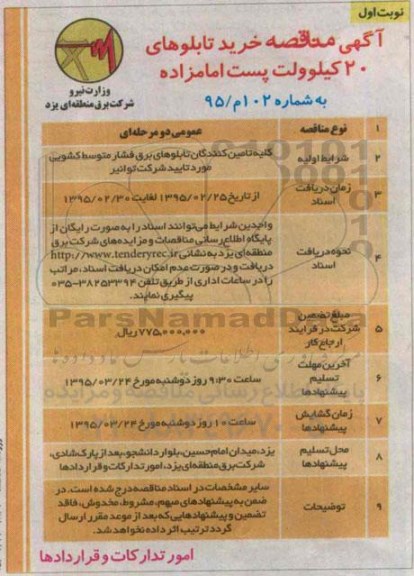 نوبت اول
آگهی مناقصه خرید تابلوهای
۲۰ کیلوولت پست امامزاده
به شماره ۱۰۲م/۹۵
وزارت نیرو
شرکت برق منطقه‌ای یزد
۱ نوع مناقصه عمومی دو مرحله‌ای
۲ شرایط اولیه کلیه تامین کنندگان تابلوهای برق فشار متوسط کشویی
مورد تایید شرکت توانیر
۳ زمان دریافت
اسناد از تاریخ ۱۳۹۵/۰۲/۲۵ لغایت ۱۳۹۵/۰۲/۳۰
۴ نحوه دریافت
اسناد
واجدین شرایط می‌توانند اسناد را به صورت رایگان از
پایگاه اطلاع رسانی مناقصات و مزایده‌های شرکت برق
منطقه‌ای یزد به نشانی http://www.tenderyrec.ir
دریافت و در صورت عدم امکان دریافت اسناد، مراتب
را در ساعات اداری از طریق تلفن ۳۸۲۵۳۳۹۴-۰۳۵
پیگیری نمایند.
۵ مبلغ تضمین
شرکت در فرایند
ارجاع کار
۷۷۵,۰۰۰,۰۰۰ ریال
۶ آخرین مهلت
تسلیم
پیشنهادها
ساعت ۹:۳۰ روز دوشنبه مورخ ۱۳۹۵/۰۳/۲۴
۷ زمان گشایش
پیشنهادها
ساعت ۱۰ روز دوشنبه مورخ ۱۳۹۵/۰۳/۲۴
۸ محل تسلیم
پیشنهادها
یزد، میدان امام حسین، بلوار دانشجو، بعد از پارک شادی،
شرکت برق منطقه‌ای یزد، امور تدارکات و قراردادها
۹ توضیحات
سایر مشخصات در اسناد مناقصه درج شده است. در
ضمن به پیشنهادهای مبهم، مشروط، مخدوش، فاقد
تضمین و پیشنهادهایی که بعد از موعد مقرر ارسال
گردد ترتیب اثر داده نخواهد شد.
امور تدارکات و قراردادها
ParsNamadData